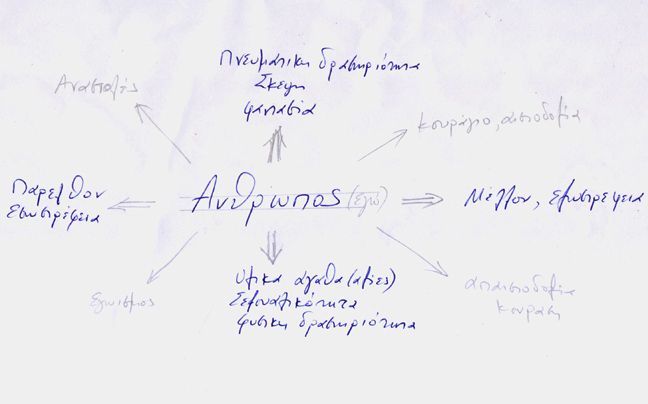 Πνευματικη δραστηριότητα
Σκεψη
φαντασία
Αναστολές
κουράγιο, αισιοδοξία
Παρελθον
Εσωστρέφεια
Άνθρωπος (εγώ)
Μέλλον, εξωστρέφεια
Υλικα άγαθα (αξίες)
Σεξουαλικότητα
φυσικη δραστηριότητα
εγωισμος
απαισιοδοξία
κουραση